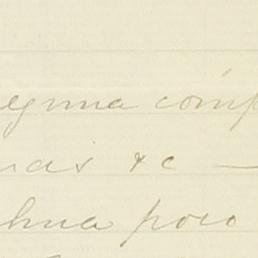 egma comp
uas &c —
hua poco